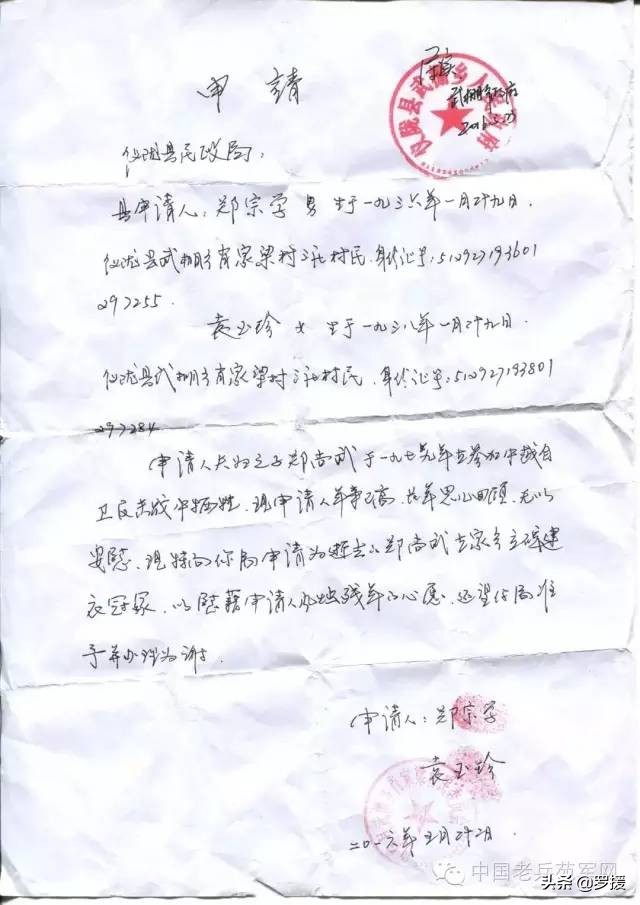 申請
属实
武棚乡政府
2016.5.23
仪陇县武棚乡人民政府
仪陇县民政局:
具申请人:郑宗学 男 生于一九三六年一月廿九日.
仪陇县武棚乡肖家梁村三社村民.身份证号:512927193601
297255.
袁玉珍 女 生于一九三八年一月廿九日.
仪陇县武棚乡肖家梁村三社村民.身份证号:512927193801
297284
申请人夫妇之子郑尚武于一九七九年在参加中越自
卫反击战中牺牲.现申请人年事已高.长年思儿
安慰.现特向你局申请为逝去的郑尚武在家乡立碑建
衣冠冢.以慰藉申请人风烛残年的心愿.还望你局准
予并办理为谢.
申请人:郑宗学
袁玉珍
二〇一六年五月廿二日.
中国老兵苟军网
头条 @罗援